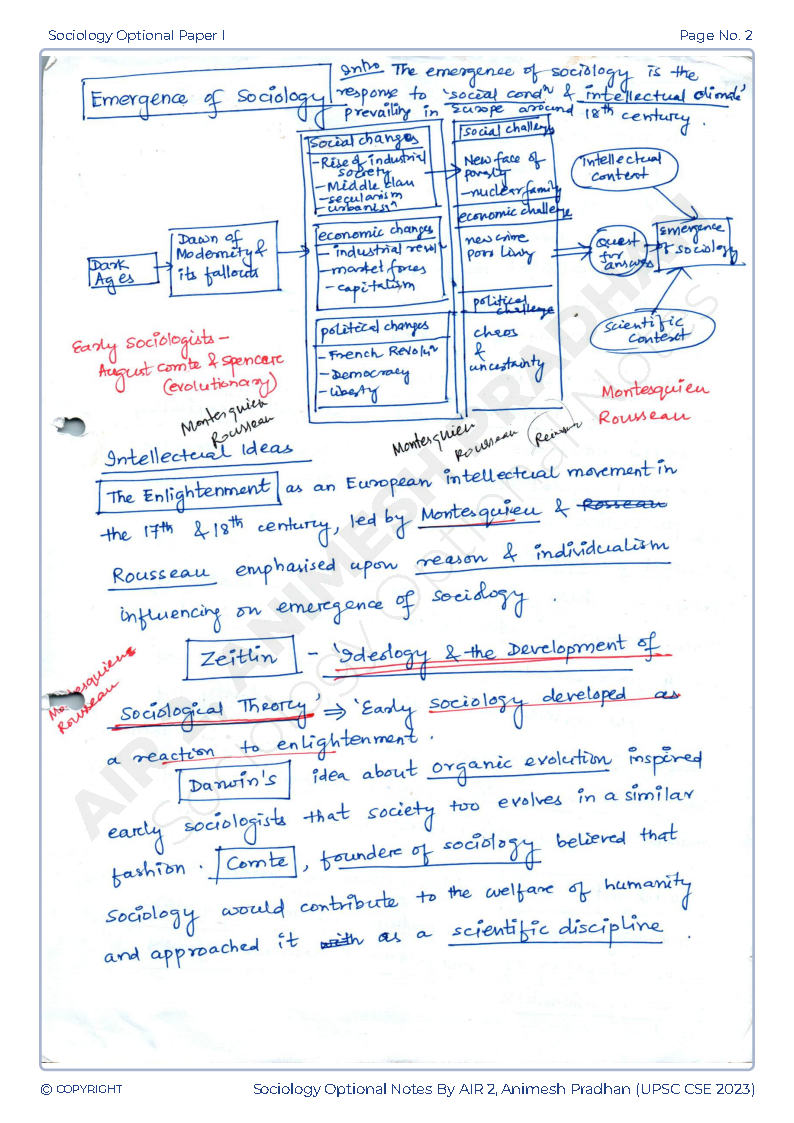 Sociology Optional Paper I
Page No. 2
Emergence of Sociology
Intro The emergence of sociology is the
response to 'social condn & intellectual climate'
prevailing in Europe around 18th century.
Dark
Ages
Dawn of
Modernity &
its fallouts
social changes
- Rise of industrial
society
- Middle class
- secularism
- urbanisn
economic changes
- industrial revoln
- market forces
- capitalism
political changes
- French Revolun
- Democracy
- liberty
social challenge
New face of
poverty
- nuclear family
economic challenge
new crime
poor living
political
challenge
chaos
&
uncertainty
intellectual
context
Quest
for
answers
Emergence
of sociology
Scientific
context
Early Sociologists -
August comte & spencer
(evolutionary)
Montesquieu
Rousseau
Montesquieu
Rousseau
Montesquieu
Rousseau
Intellectual Ideas
The Enlightenment as an European intellectual movement in
the 17th & 18th century, led by Montesquieu & Rosseau
Rousseau emphasised upon reason & individualism
influencing on emeregence of sociology.
Zeitlin - 'Ideology & the Development of
Sociological Theory' ⇒ 'Early sociology developed as
a reaction to enlightenment.
Montesquieu
Rousseau
Darwin's idea about organic evolution inspired
early sociologists that society too evolves in a similar
fashion. Comte, foundere of sociology believed that
Sociology would contribute to the welfare of humanity
and approached it with as a scientific discipline.
AIR 2, ANIMESH PRADHAN
Sociology Optional Notes
© COPYRIGHT
Sociology Optional Notes By AIR 2, Animesh Pradhan (UPSC CSE 2023)